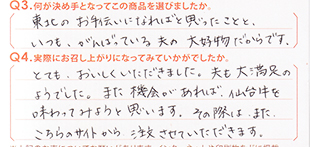 Q3.何が決め手となってこの商品を選びましたか。
東北のお手伝いになればと思ったことと、
いつも、がんばっている夫の大好物だからです。
Q4.実際にお召し上がりになってみていかがでしたか。
とても、おいしくいただきました。夫も大満足の
ようでした。また機会があれば、仙台牛を
味わってみようと思います。その際は、また、
こちらのサイトから注文させていただきます。